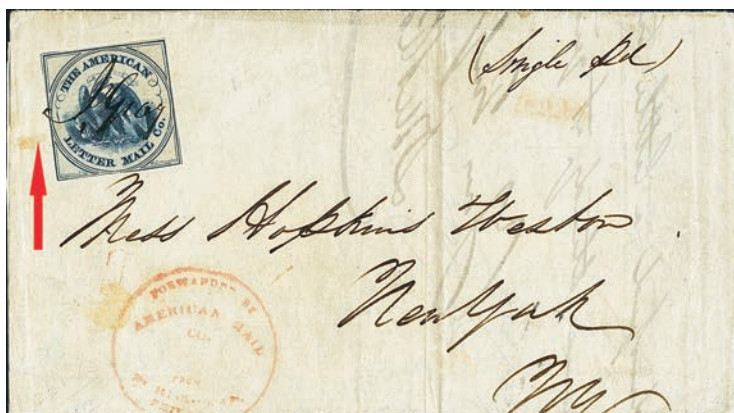 THE AMERICAN
LETTER MAIL Co.
(Single Pd)
Mess Hopkins Weston
New York
NY
FORWARDED BY
AMERICAN MAIL
CO.
FROM